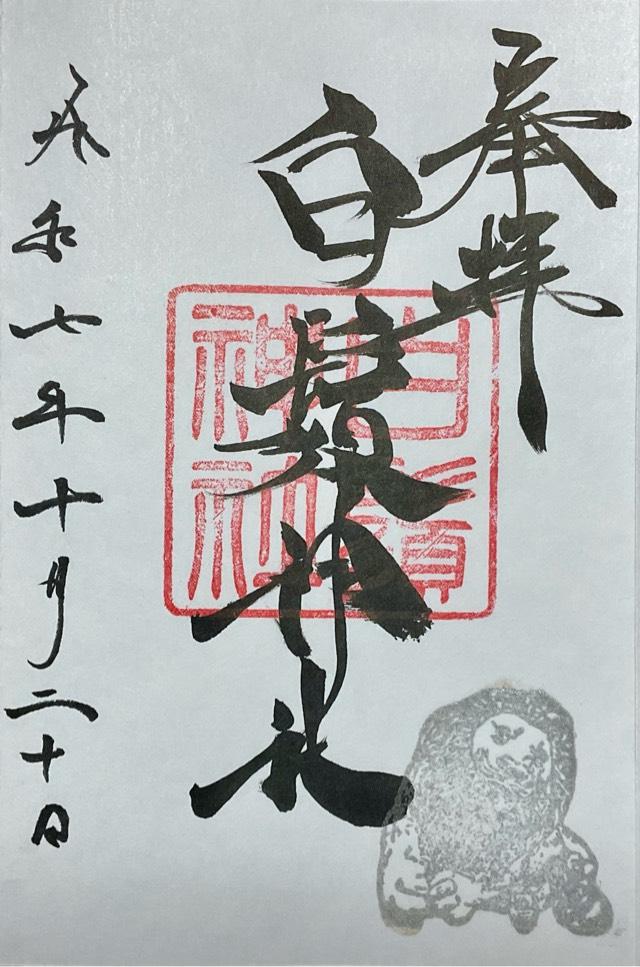 奉拝
白鬚神社
白須神社
令和七年十月二十日